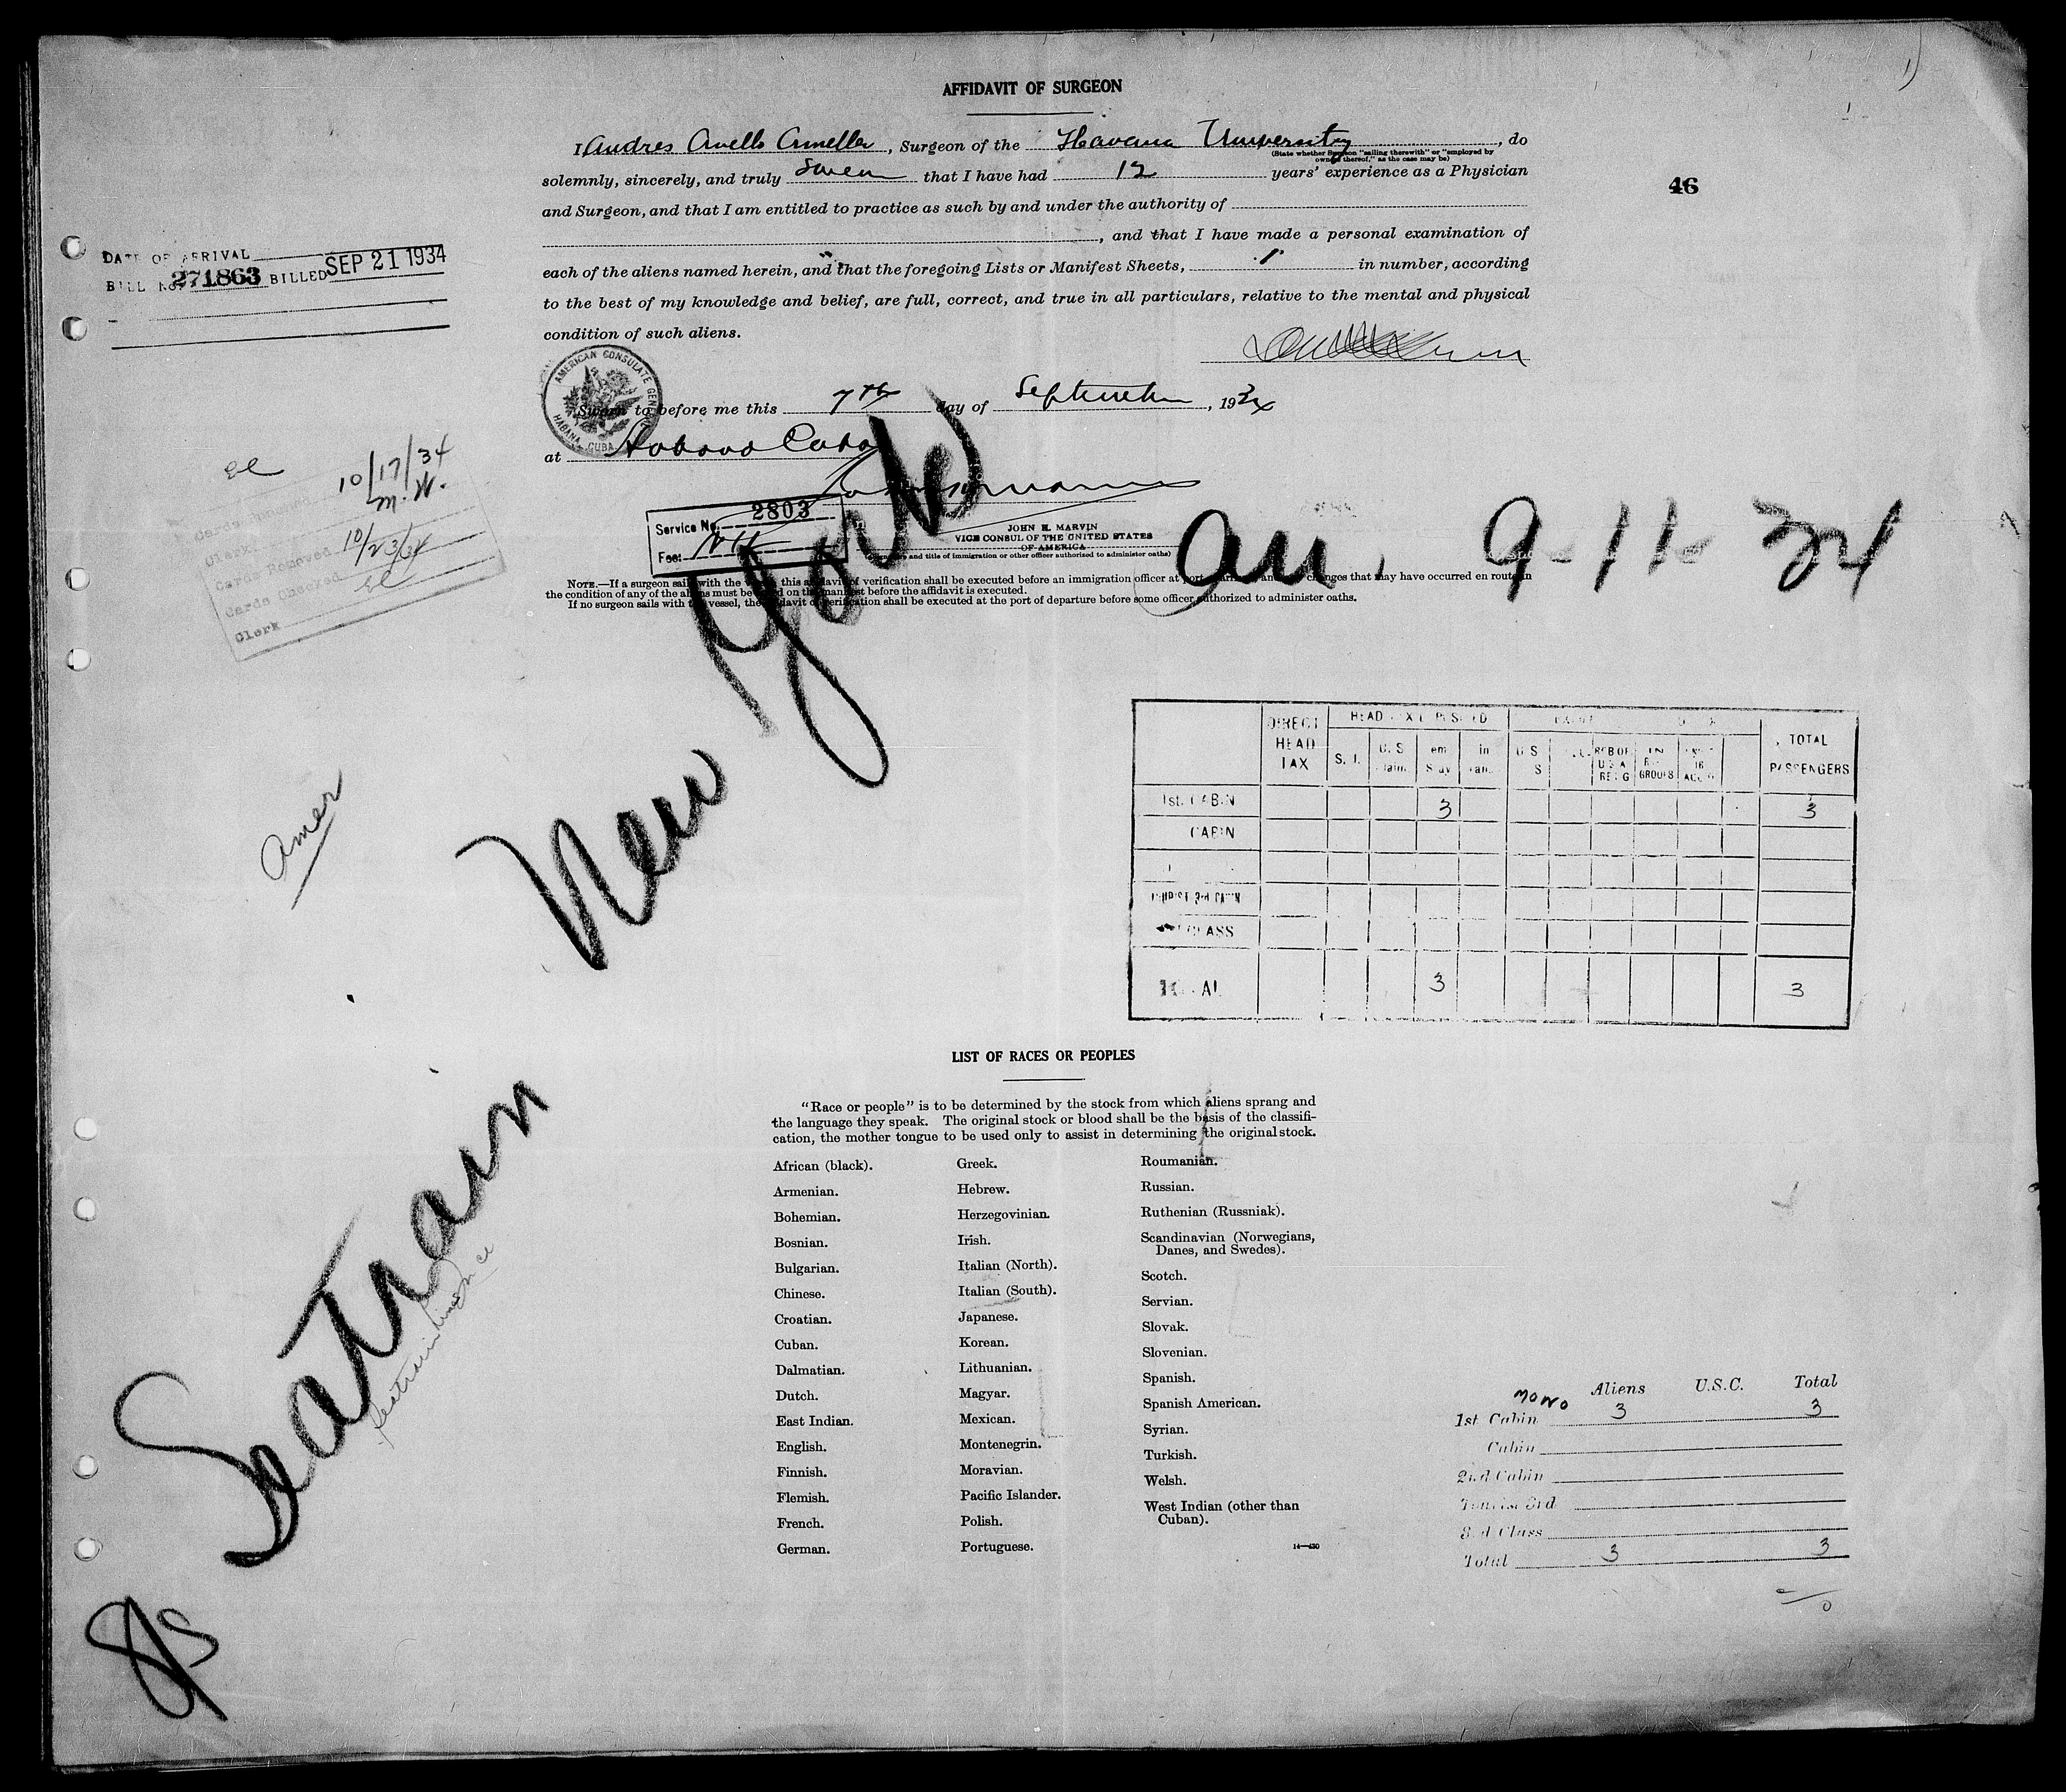 AFFIDAVIT OF SURGEON
I, Andres Avello, Surgeon of the Havana University, do
(State whether Surgeon "sailing therewith" or "employed by owners thereof," as the case may be)
solemnly, sincerely, and truly swear that I have had 12 years' experience as a Physician
and Surgeon, and that I am entitled to practice as such by and under the authority of
, and that I have made a personal examination of
each of the aliens named herein, and that the foregoing Lists or Manifest Sheets, 1 in number, according
to the best of my knowledge and belief, are full, correct, and true in all particulars, relative to the mental and physical
condition of such aliens.
46
DATE OF ARRIVAL
BILL No. 271863 BILLED SEP 21 1934
AMERICAN CONSULATE GENERAL
HABANA, CUBA
Sworn to before me this 7th day of September, 1934
at Habana Cuba
Service No. 2803
Fee:
JOHN H. MARVIN
VICE CONSUL OF THE UNITED STATES
OF AMERICA
and title of immigration or other officer authorized to administer oaths)
10/17/34
M.W.
Clerk
Cards Removed 10/23/34
Cards Checked
Clerk
NOTE.—If a surgeon sails with the vessel, this affidavit of verification shall be executed before an immigration officer at port of arrival and any changes that may have occurred en route in
the condition of any of the aliens must be noted on the manifest before the affidavit is executed.
If no surgeon sails with the vessel, the affidavit of verification shall be executed at the port of departure before some officer authorized to administer oaths.
New York
9-11-34
Amer
Seatrain
Seatrain
DIRECT HEAD TAX
HEAD TAX
S. I.
U. S.
TOTAL PASSENGERS
1st. CABIN 3 3
CABIN
TOURIST 3rd CABIN
CLASS
TOTAL 3 3
LIST OF RACES OR PEOPLES
"Race or people" is to be determined by the stock from which aliens sprang and
the language they speak. The original stock or blood shall be the basis of the classifi-
cation, the mother tongue to be used only to assist in determining the original stock.
African (black).
Armenian.
Bohemian.
Bosnian.
Bulgarian.
Chinese.
Croatian.
Cuban.
Dalmatian.
Dutch.
East Indian.
English.
Finnish.
Flemish.
French.
German.
Greek.
Hebrew.
Herzegovinian.
Irish.
Italian (North).
Italian (South).
Japanese.
Korean.
Lithuanian.
Magyar.
Mexican.
Montenegrin.
Moravian.
Pacific Islander.
Polish.
Portuguese.
Roumanian.
Russian.
Ruthenian (Russniak).
Scandinavian (Norwegians,
Danes, and Swedes).
Scotch.
Servian.
Slovak.
Slovenian.
Spanish.
Spanish American.
Syrian.
Turkish.
Welsh.
West Indian (other than
Cuban).
14—430
Aliens U.S.C. Total
1st Cabin 3 3
Cabin
2nd Cabin
Tourist 3rd
3rd Class
Total 3 3